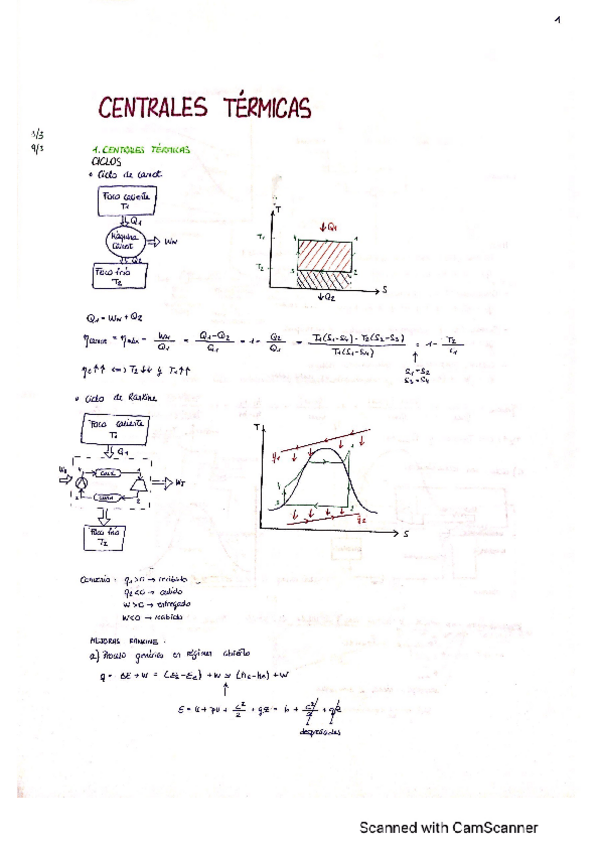 1
CENTRALES TÉRMICAS
9/3
1. CENTRALES TÉRMICAS
CICLOS
• Ciclo de Carnot
Foco caliente
T1
Q1
Máquina
Carnot
WN
Q2
Foco frío
T2
T
Q1
T1
1
T2
3
2
S
Q2
Q1 = WN + Q2
= WN/Q1 = Q1-Q2/Q1 = 1- Q2/Q1 = T1(S1-S4) - T2(S2-S3)/T1(S1-S4) = 1- T2/T1
S1=S2
S3=S4
T2↓↓ y T1↑↑
• Ciclo de Rankine
Foco caliente
T1
Q1
WT
Foco frío
T2
T
q1
q2
S
q1>0 → recibido
q2<0 → cedido
W>0 → entregado
W<0 → recibido
MEJORAS RANKINE:
a) Proceso genérico en régimen abierto
q = ΔE + W =
+ W
E = u + pv + c²/2 + gz = h + c²/2 + gz